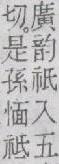 廣韵祇入五
切。是孫愐祗